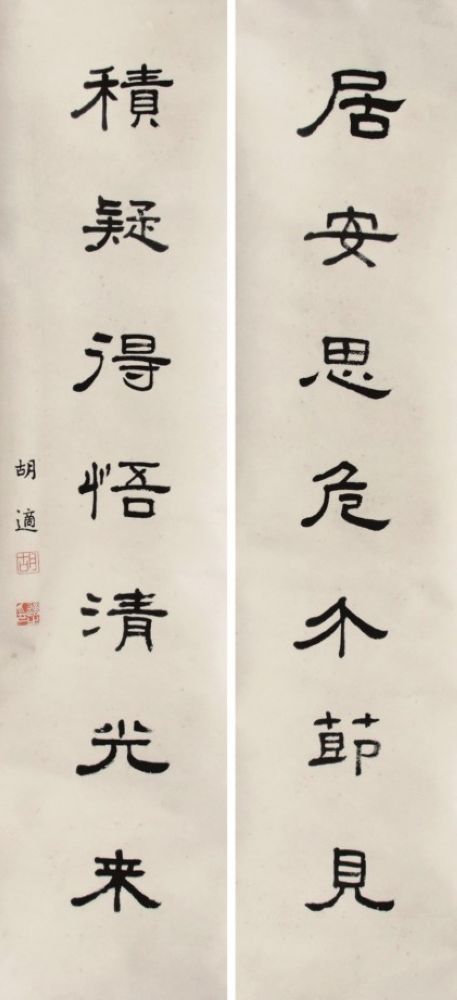 居安思危介節見
積疑得悟清光来
胡適
胡